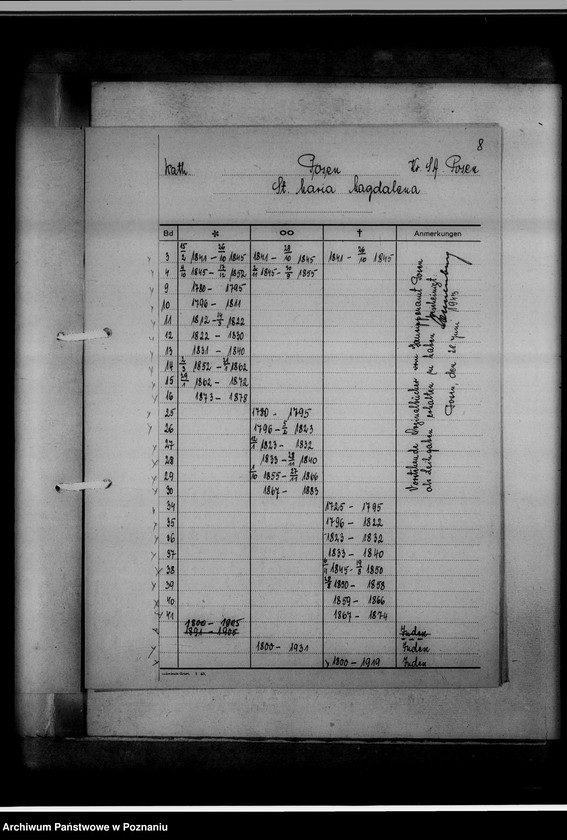 8
Kath. Posen Kr. SA Posen
St. Maria Magdalena
Bd * ∞ † Anmerkungen
3 15/2 1841 - 26/10 1845 1841 - 28/10 1845 1841 - 26/10 1845
4 1845 - 1852 1845 - 1855
9 1780 - 1795
10 1796 - 1811
11 1812 - 1822
12 1822 - 1830
13 1831 - 1840
14 1852 - 1862
15 1862 - 1872
16 1873 - 1878
25 1780 - 1795
26 1796 - 1823
27 1823 - 1832
28 1833 - 1840
29 1855 - 1866
30 1867 - 1883
34 1725 - 1795
35 1796 - 1822
36 1823 - 1832
37 1833 - 1840
38 1845 - 1850
39 1850 - 1858
40 1859 - 1866
41 1867 - 1874
1800 - 1905
1891 - 1905 Juden
1800 - 1931 Juden
1800 - 1919 Juden
Vorstehende Originalbücher vom Gausippenamt Posen
als Leihgaben erhalten zu haben bescheinigt.
Posen, den 21. Juni 1943
Archiwum Państwowe w Poznaniu